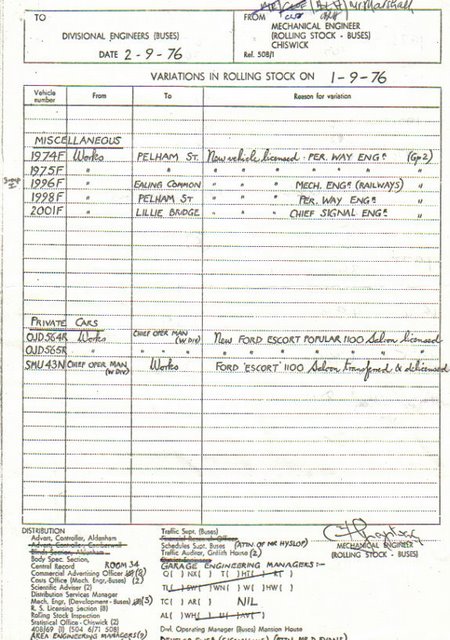 Mr Marshall
TO
FROM
DIVISIONAL ENGINEERS (BUSES)
MECHANICAL ENGINEER
(ROLLING STOCK - BUSES)
CHISWICK
DATE 2-9-76
Ref. 508/1
VARIATIONS IN ROLLING STOCK ON 1-9-76
Vehicle number From To Reason for variation
MISCELLANEOUS
1974F Works PELHAM ST. New vehicle licensed - PER. WAY ENGR (Gp 2)
1975F " " " " " " " " "
1996F " EALING COMMON " " " MECH. ENGR (RAILWAYS) "
1998F " PELHAM ST " " " PER. WAY ENGR "
2001F " LILLIE BRIDGE " " " CHIEF SIGNAL ENGR "
PRIVATE CARS
OJD564R Works CHIEF OPER MAN (W DIV) New FORD ESCORT POPULAR 1100 Saloon licensed
OJD565R " " " " " " " " " " "
SMU43N CHIEF OPER MAN (W DIV) Works FORD 'ESCORT' 1100 Saloon transferred & delicensed
DISTRIBUTION
Advert. Controller, Aldenham
Advert. Controller, Camberwell
Blinds Section, Aldenham
Body Spec. Section,
Central Record ROOM 34
Commercial Advertising Officer (2)
Costs Office (Mech. Engr.-Buses) (2)
Scientific Adviser (2)
Distribution Services Manager
Mech. Engr. (Development - Buses) (3)
R. S. Licensing Section (8)
Rolling Stock Inspection
Statistical Office - Chiswick (2)
408/69 (1) (504 6/71 508)
AREA ENGINEERING MANAGERS(9)
Traffic Supt. (Buses)
Financial Research Officer
Schedules Supt. Buses (ATTN. OF MR HYSLOP)
Traffic Auditor, Griffith House (2)
GARAGE ENGINEERING MANAGERS:-
Q( ) NX( ) T( ) H( ) R( )
TL( ) SW( ) WN( ) W( ) HW( )
TC( ) AR( ) NIL
AL( ) WH( ) U( ) AV( )
Divl. Operating Manager (Buses) Mansion House
MECHANICAL ENGINEER
(ROLLING STOCK - BUSES)